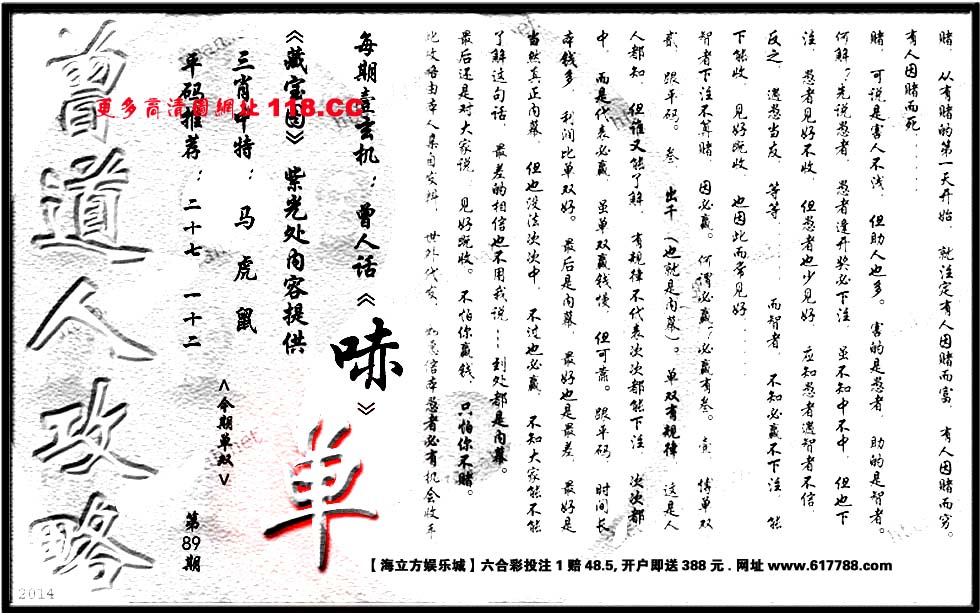 赌. 从有赌的第一天开始. 就注定有人因赌而富. 有人因赌而穷.
有人因赌而死......
赌. 可说是害人不浅. 但助人也多。害的是愚者. 助的是智者。
何解?先说愚者. 愚者逢开奖必下注. 虽不知中不中. 但也下
注. 愚者见好不收. 但愚者也少见好. 应知愚者遇智者不信.
反之. 遇愚当友. 等等...... 而智者. 不知必赢不下注. 能
下能收. 见好既收. 也因此而常见好......
智者下注不算赌. 因必赢。何谓必赢?必赢有叁。壹. 博单双
贰. 跟平码。叁. 出千（也就是内幕）。单双有规律. 这是人
人都知. 但谁又能了解. 有规律不代表次次都能下注. 次次都
中. 而是代表必赢. 虽单双赢钱慢. 但可靠。跟平码. 时间长
本钱多. 利润比单双好。最后是内幕. 最好也是最差. 最好是
当然真正内幕. 但也没法次次中. 不过也必赢. 不知大家能不
了解这句话. 最差的相信也不用我说...到处都是内幕。
最后还是对大家说. 见好既收。不怕你赢钱、只怕你不赌。
此攻略由本人亲自发辑. 世外代发. 如意信本愚者必有机会收手
每期壹玄机：曾人话《咊》
《藏宝图》紫光处内容提供
三肖中特：马 虎 鼠
平码推荐：二十七 一十二
更多高清圖網址 118.CC
<今期单双>
单
第89期
曾道人攻略
2014
【海立方娱乐城】六合彩投注 1 赔 48.5, 开户即送 388 元 . 网址 www.617788.com